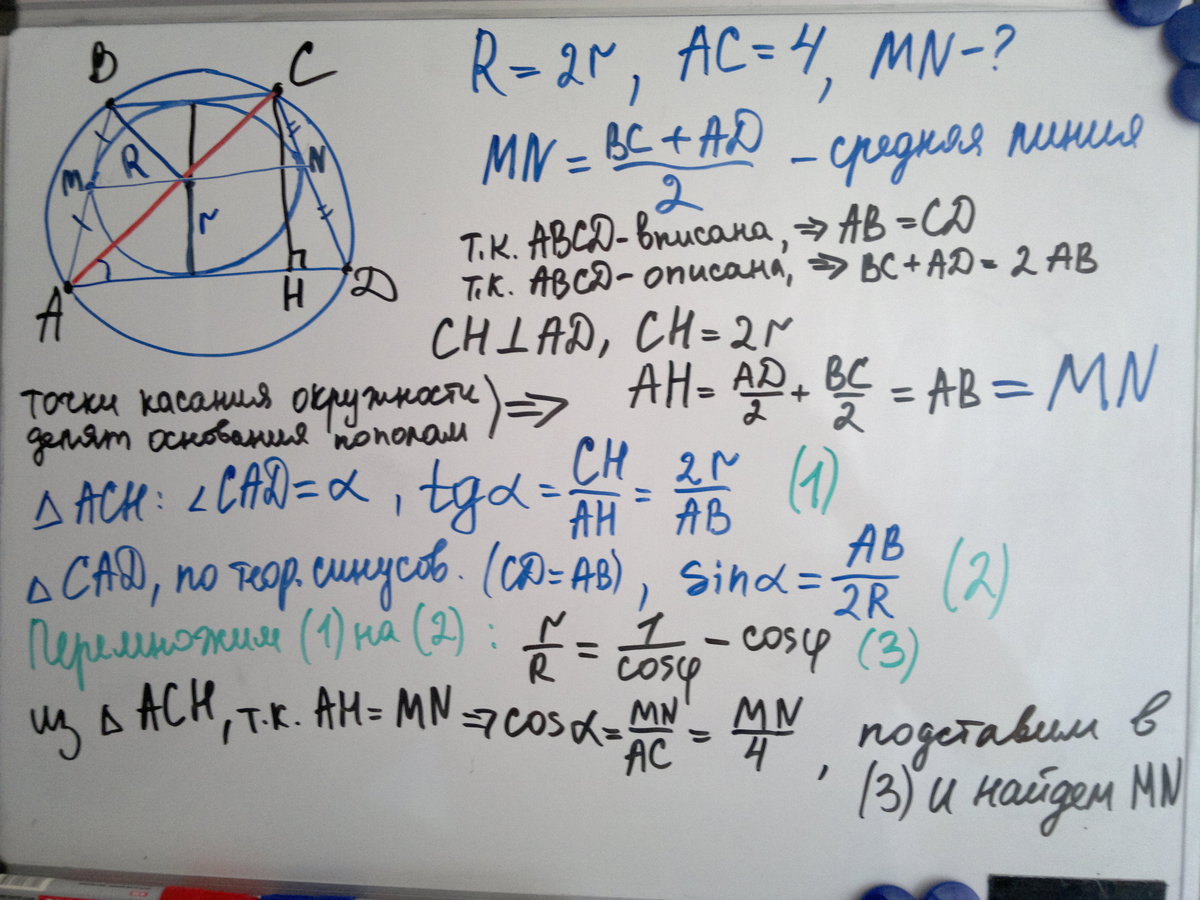 B
C
R
M
N
r
A
H
D
R = 2r, AC = 4, MN - ?
MN = (BC + AD)/2 - средняя линия
т.к. ABCD - вписана, ⇒ AB = CD
т.к. ABCD - описана, ⇒ BC + AD = 2 AB
CH ⊥ AD, CH = 2r
точки касания окружности
делят основания пополам) ⇒ AH = AD/2 + BC/2 = AB = MN
△ ACH: ∠CAD = α, tg α = CH/AH = 2r/AB (1)
△ CAD, по теор. синусов. (CD = AB), sin α = AB/2R (2)
Перемножим (1) на (2): r/R = 1/cos φ - cos φ (3)
из △ ACH, т.к. AH = MN ⇒ cos α = MN/AC = MN/4, подставим в
(3) и найдем MN